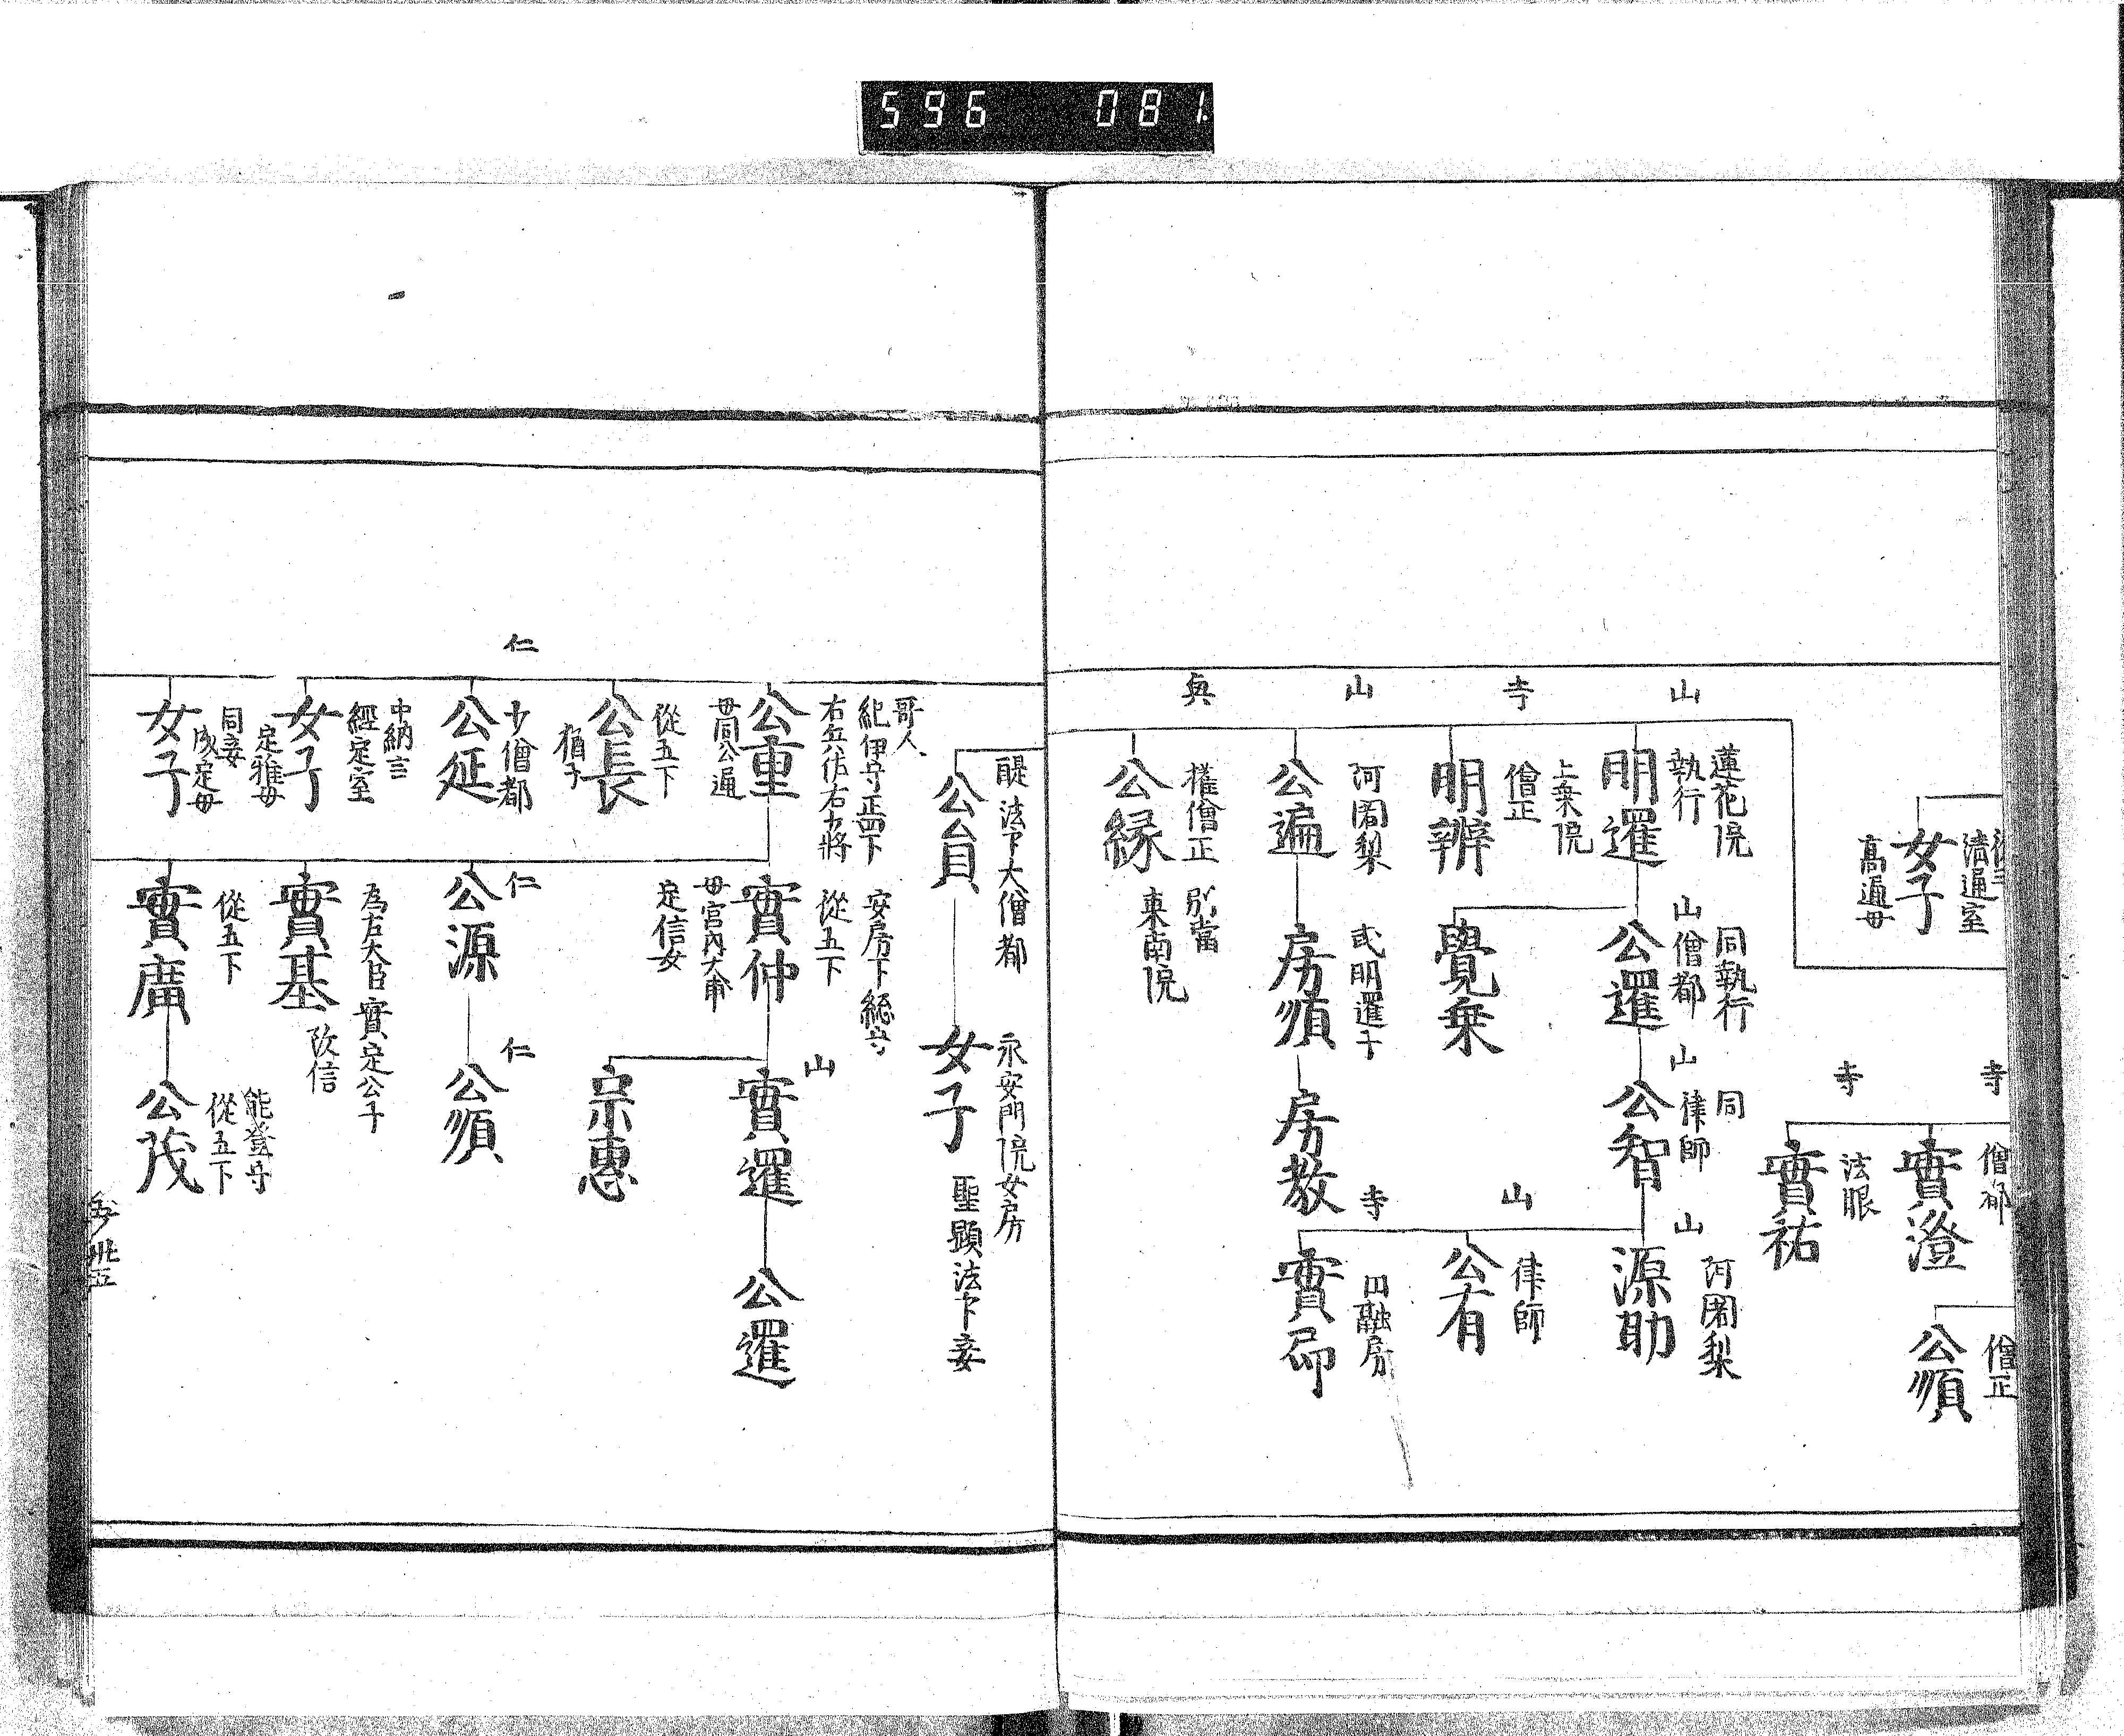 596 081
従三
清通室
女子
高通母
寺
僧都
實澄
寺
法眼
實祐
僧正
公順
山
蓮花院
執行
明暹
山
同執行
僧都
公暹
山
同
律師
公智
山
阿闍梨
源助
寺
上乗院
僧正
明辨
覺乗
山
律師
公有
山
阿闍梨
公遍
或明暹子
房順
房教
寺
円融房
實命
興
権僧正 別當
公縁
東南院
醍 法下大僧都
公員
永安門院女房
女子
聖顕法下妾
哥人
紀伊守正四下
右兵佐右少将
公重
母同公通
安房下総守
従五下
實仲
母宮内大甫
定信女
山
實暹
公暹
宗惠
従五下
公長
猶子
仁
少僧都
公延
仁
公源
仁
公順
中納言
經定室
女子
定雅母
為左大臣實定公子
實基
改信
同妾
女子
成定母
従五下
實廣
能登守
従五下
公茂